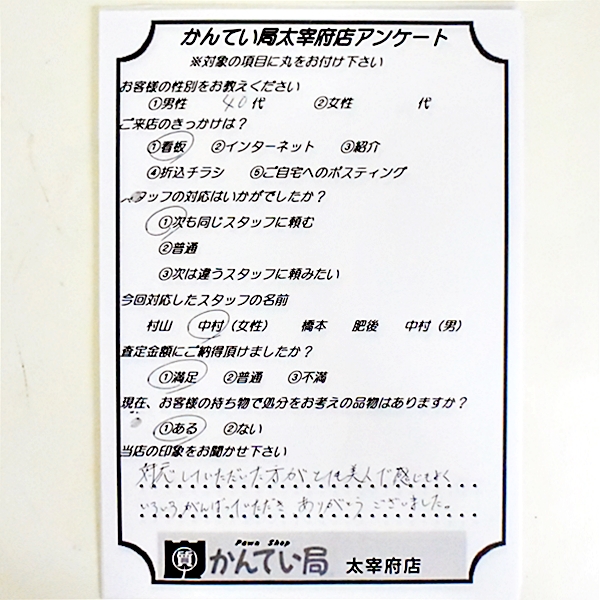 かんてい局太宰府店アンケート
※対象の項目に丸をお付け下さい
お客様の性別をお教えください
①男性 40代 ②女性 代
ご来店のきっかけは？
①看板 ②インターネット ③紹介
④折込チラシ ⑤ご自宅へのポスティング
スタッフの対応はいかがでしたか？
①次も同じスタッフに頼む
②普通
③次は違うスタッフに頼みたい
今回対応したスタッフの名前
村山 中村（女性） 橋本 肥後 中村（男）
査定金額にご納得頂けましたか？
①満足 ②普通 ③不満
現在、お客様の持ち物で処分をお考えの品物はありますか？
①ある ②ない
当店の印象をお聞かせ下さい
対応していただいた方がとても美人で感じもよく
いろいろがんばっていただき ありがとうございました。
Pawn Shop
質 かんてい局 太宰府店